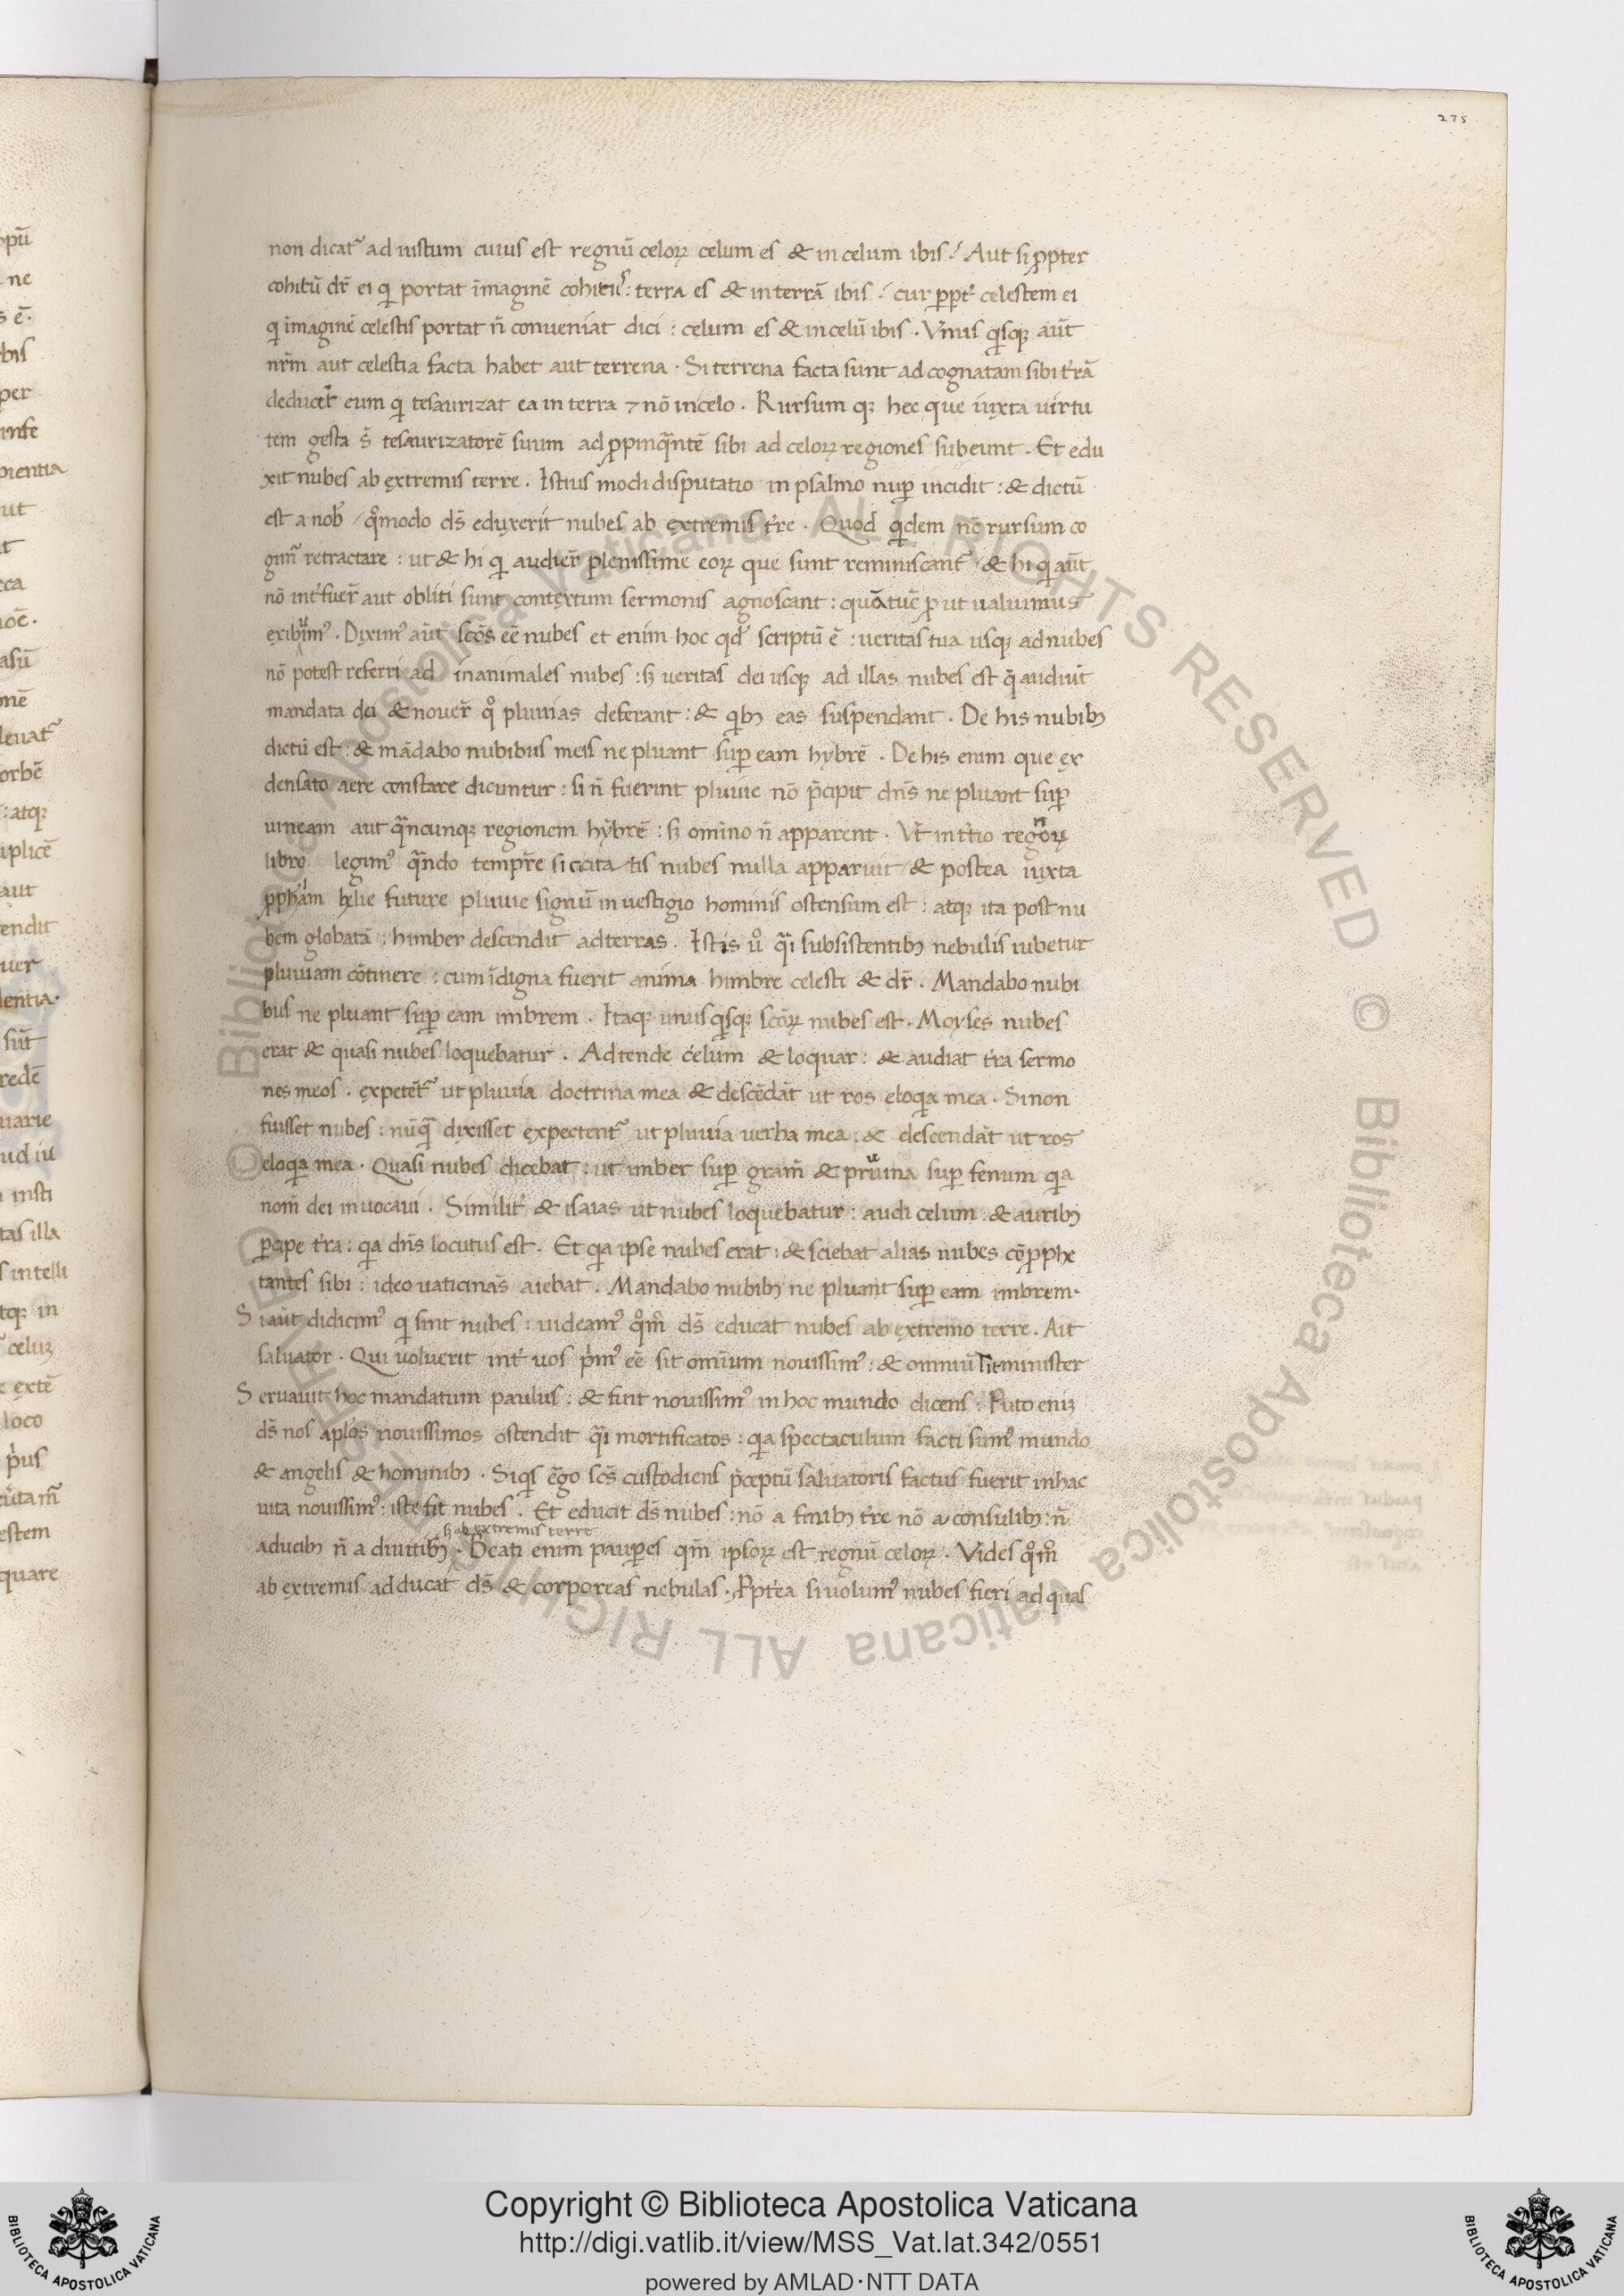 275
non dicat᷑ ad iustum cuius est regnū celoꝝ celum es & in celum ibis? Aut si ꝓpter
cohitū dr̄ ei qͥ portat īmaginē cohitiˢ: terra es & in terrā ibis? cur ꝓpt᷑ celestem ei
qͥ imaginē celestis portat n̄ conueniat dici: celum es & in celū ibis. Vnus qͥsqꝫ aūt
nr̄m aut celestia facta habet aut terrena. Si terrena facta sunt ad cognatam sibi t᷑rā
deducēt eum qͥ tesaurizat ea in terra ⁊ nō in celo. Rursum qꝫ hec que iuxta uirtu
tem gesta s̄ tesaurizatorē suum ad ꝓpinqͣntē sibi ad celoꝝ regiones subeunt. Et edu
xit nubes ab extremis terre. Istius modi disputatio in psalmo nuꝑ incidit: & dictū
est a nob̄ / qͦmodo ds̄ eduxerit nubes ab extremis t᷑re. Quod qͥdem nc̄ rursum co
gim᷑ retractare: ut & hi qͥ audier̄ plenissime eoꝝ que sunt reminiscant᷑ / & hi qͥ aūt
nō int᷑fuer̄ aut obliti sunt contextum sermonis agnoscant: quā tūc ꝓut ualuimus
exibuimꝰ. Diximꝰ aūt scōs eē nubes et enim hoc qd᷑ scriptū ē: ueritas tua usqꝫ ad nubes
nō potest referri ad inanimales nubes: sꝫ ueritas dei usqꝫ ad illas nubes est q̄ audiūt
mandata dei & nouer̄ qͦ pluuias deferant: & qͥbꝫ eas suspendant. De his nubibꝫ
dictū est: & mādabo nubibus meis ne pluant suꝑ eam hybrē. De his enim que ex
densato aere constare dicuntur: si n̄ fuerint pluuie nō p̄cipit dn̄s ne pluant suꝑ
uineam aut qͣncunqꝫ regionem hybrē: sꝫ omīno n̄ apparent. Vt in t᷑tio regnoꝝ
libro legimꝰ qͣndo tempr̄e siccitatis nubes nulla apparuit / & postea iuxta
ꝓph̄am helie future pluuie signū in uestigio hominis ostensum est: atqꝫ ita post nu
bem globatā: himber descendit ad terras. Istis uͦ qͣi subsistentibꝫ nebulis iubetur
pluuiam cōtinere: cum īdigna fuerit anima himbre celesti & dr̄. Mandabo nubi
bus ne pluant suꝑ eam imbrem. Itaqꝫ unusqͥsqꝫ scōꝝ nubes est. Moyses nubes
erat & quasi nubes loquebatur. Adtende celum & loquar: & audiat t᷑ra sermo
nes meos. expetēt᷑ ut pluuia doctrina mea & descēdāt ut ros eloqͥa mea. Si non
fuisset nubes: nūqͣ dixisset expectent᷑ ut pluuia uerba mea: & descendāt ut ros
eloqͥa mea. Quasi nubes dicebat: ut imber suꝑ gram̄ & pruina suꝑ fenum qͥa
nom̄ dei inuocaui. Similit᷑ & isaias ut nubes loquebatur: audi celum: & auribꝫ
ꝑcipe t᷑ra: qͥa dn̄s locutus est. Et qͥa ipse nubes erat: & sciebat alias nubes cōꝓphe
tantes sibi: ideo uaticinās aiebat. Mandabo nubibꝫ ne pluant suꝑ eam imbrem.
Si aūt didicimꝰ qͥ sint nubes: uideamꝰ qͦm̄ ds̄ educat nubes ab extremo terre. Ait
saluator. Qui uoluerit int᷑ uos pͥmꝰ eē sit omīum nouissimꝰ: & omniū sit minister
Seruauit hoc mandatum paulus: & fuit nouissimꝰ in hoc mundo dicens. Puto eniꝫ
ds̄ nos apl̄os nouissimos ostendit qͣi mortificatos: qͥa spectaculum facti sumꝰ mundo
& angelis & hominibꝫ. Siqͥs ēgo scs̄ custodiens p̄ceptū saluatoris factus fuerit in hac
uita nouissimꝰ: iste fit nubes. Et educit ds̄ nubes: nō a finibꝫ t᷑re nō a consulibꝫ: n̄
sꝫ ab extremis terre
a ducibꝫ n̄ a diuitibꝫ. Beati enim pauꝑes qm̄ ipsoꝝ est regnū celoꝝ. Vides qͦm̄
ab extremis adducat ds̄ & corporeas nebulas. Ꝓpt᷑ea si uolumꝰ nubes fieri ad quas
Copyright © Biblioteca Apostolica Vaticana
http://digi.vatlib.it/view/MSS_Vat.lat.342/0551
powered by AMLAD·NTT DATA